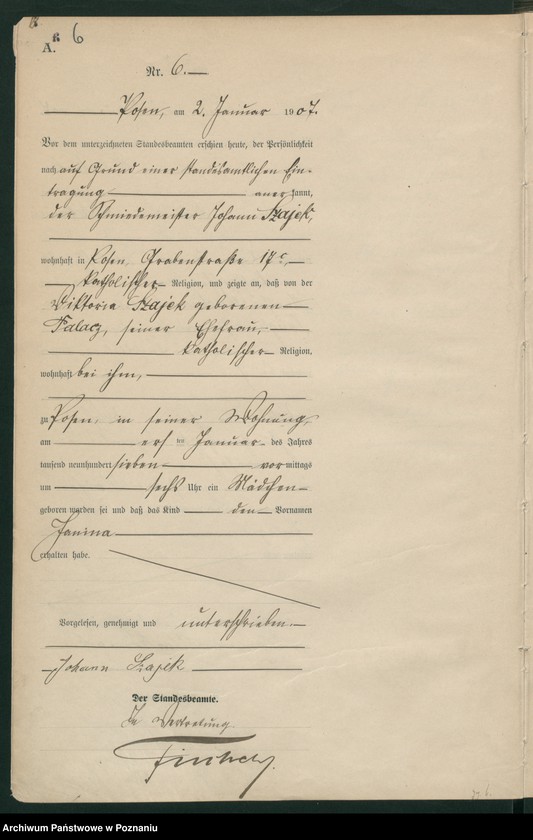 A. B 6
Nr. 6.
Posen, am 2. Januar 1907.
Vor dem unterzeichneten Standesbeamten erschien heute, der Persönlichkeit
nach auf Grund einer standesamtlichen Ein-
tragung anerkannt,
der Schmiedemeister Johann Szajek,
wohnhaft in Posen, Grabenstraße 17c,
katholischer Religion, und zeigte an, daß von der
Viktoria Szajek geborenen
Talacz, seiner Ehefrau,
katholischer Religion,
wohnhaft bei ihm,
zu Posen, in seiner Wohnung,
am ersten Januar des Jahres
tausend neunhundert sieben vormittags
um sechs Uhr ein Mädchen
geboren worden sei und daß das Kind den Vornamen
Janina
erhalten habe.
Vorgelesen, genehmigt und unterschrieben
Johann Szajek
Der Standesbeamte.
In Vertretung
Archiwum Państwowe w Poznaniu